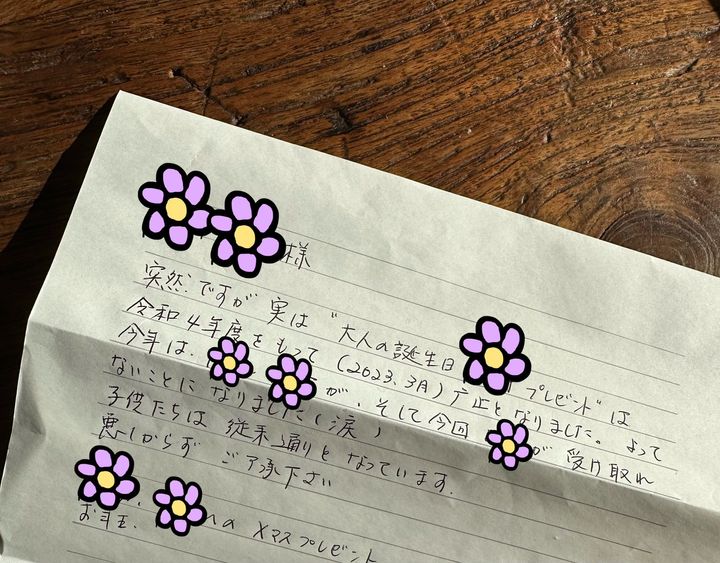 様
突然ですが 実は "大人の誕生日 プレゼント"は
令和4年度をもって (2023、3月) 廃止となりました。 よって
今年は、 が、そして今回 が 受け取れ
ないことになりました(涙)
子供たちは 従来通りとなっています.
悪しからず ご了承下さい
お年玉. Xマスプレゼント